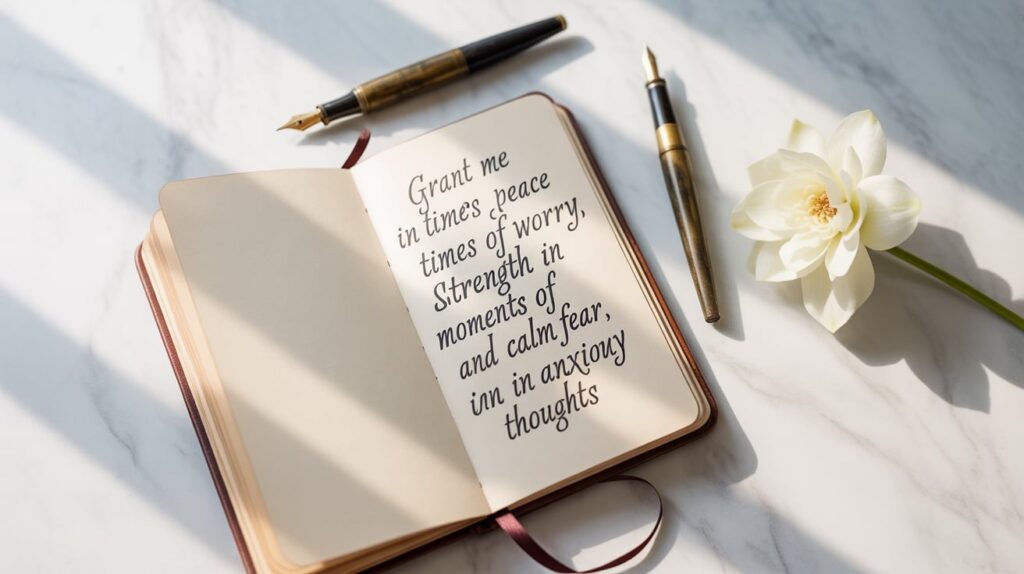 Grant me
in times peace
times of worry,
Strength in
moments of
and calm fear,
inn in anxiouy
thoughts